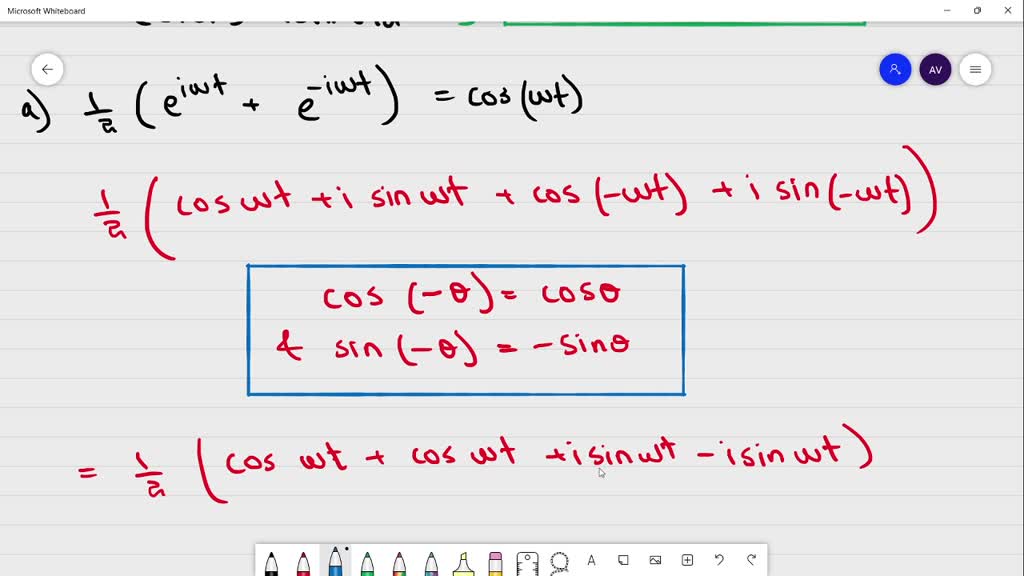 Microsoft Whiteboard
AV
a) 1/2 (e^{iωt} + e^{-iωt}) = cos(ωt)
1/2 (cos ωt + i sin ωt + cos (-ωt) + i sin (-ωt))
cos (-θ) = cosθ
& sin (-θ) = -sinθ
= 1/2 (cos ωt + cos ωt + i sin ωt - i sin ωt)
A